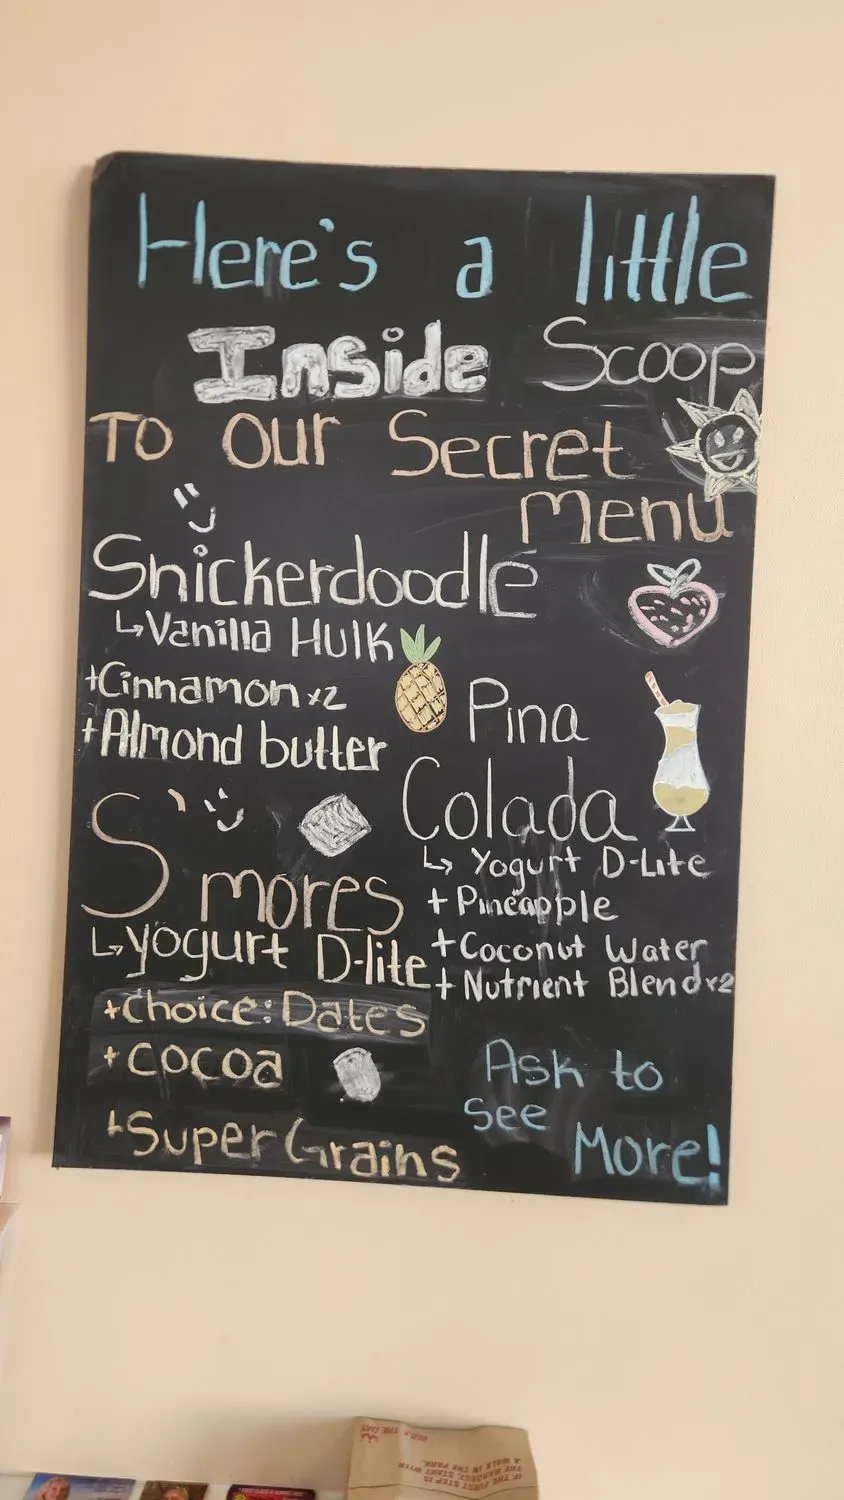 Here's a little
Inside Scoop
To our Secret
menu
Snickerdoodle
↳Vanilla Hulk
+Cinnamon x2
+Almond butter
S'mores
↳yogurt D-lite
+Choice: Dates
+COCOA
+Super Grains
Pina
Colada
↳ Yogurt D-Lite
+ Pineapple
+ Coconut Water
+ Nutrient Blend x2
Ask to
see
More!
IF THE FIRST STEP IS
THE HARDEST, START WITH
A WALK IN THE PARK.